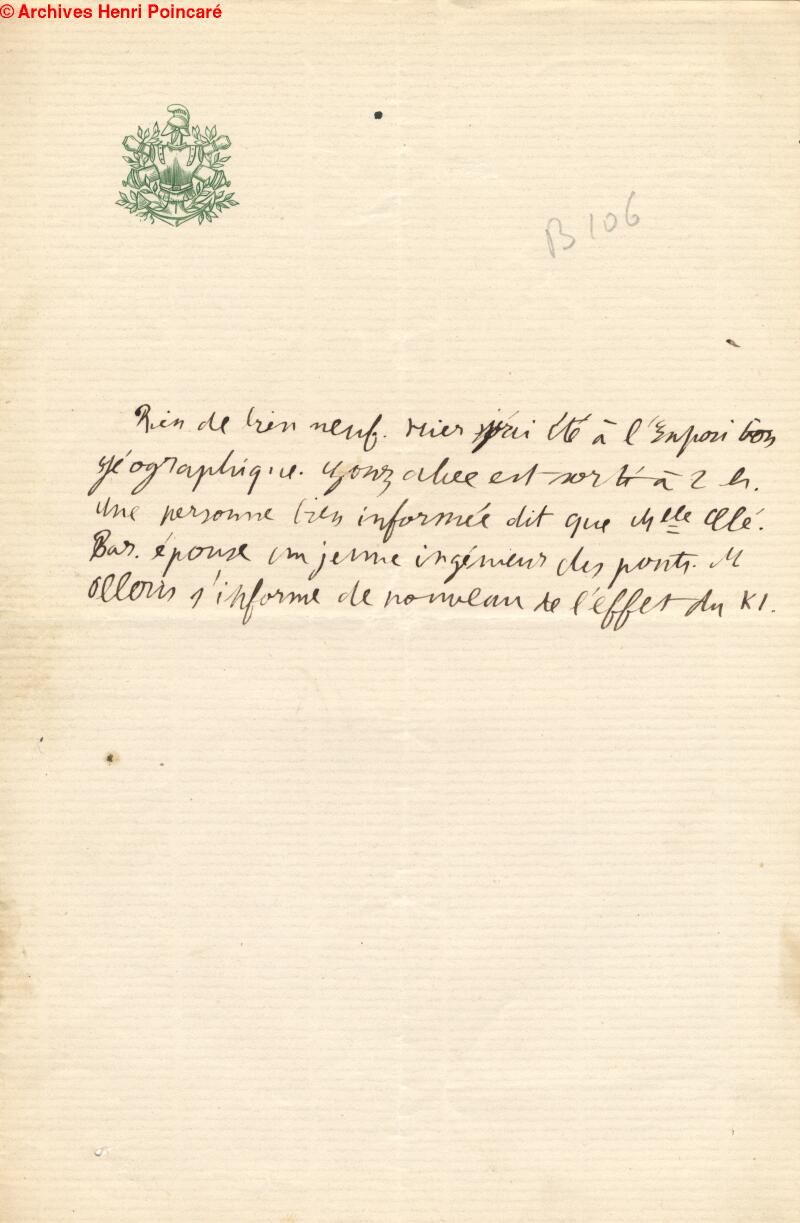 © Archives Henri Poincaré
B 106
Rien de bien neuf. Hier j'ai été à l'Exposition
géographique. Gonzalve est sorti à 2 h.
Une personne bien informée dit que Mlle
Bar. épouse un jeune ingénieur des ponts. M
Ollons s'informe de nouveau de l'effet du KI.